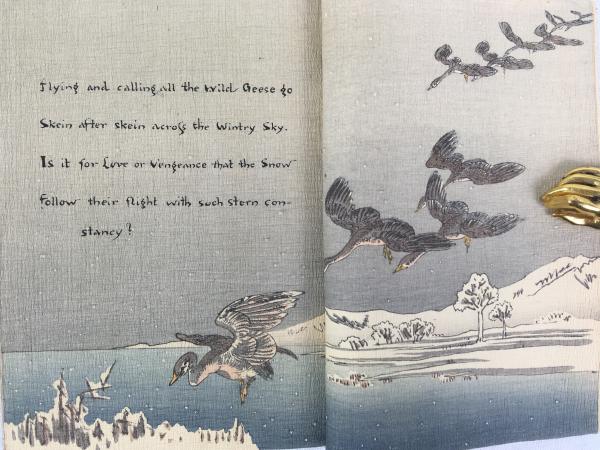 Flying and calling all the Wild Geese go
Skein after skein across the Wintry Sky.
Is it for Love or Vengeance that the Snow
Follow their flight with such stern con-
stancy?